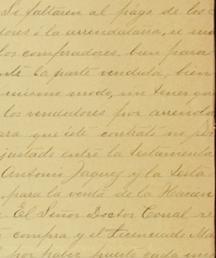 Se faltaren al pago de los
dores ó la arrendataria, si
los compradores bien para
la parte vendida, bien
mismo modo, sin tener
los vendedores por arrenda
que este contrato
justado entre la testamenta
Antonio Jaques y la testa
para la venta de la Hacien
El Señor Doctor Conal
compra y el Licenciado Ma
por haber puesto cada